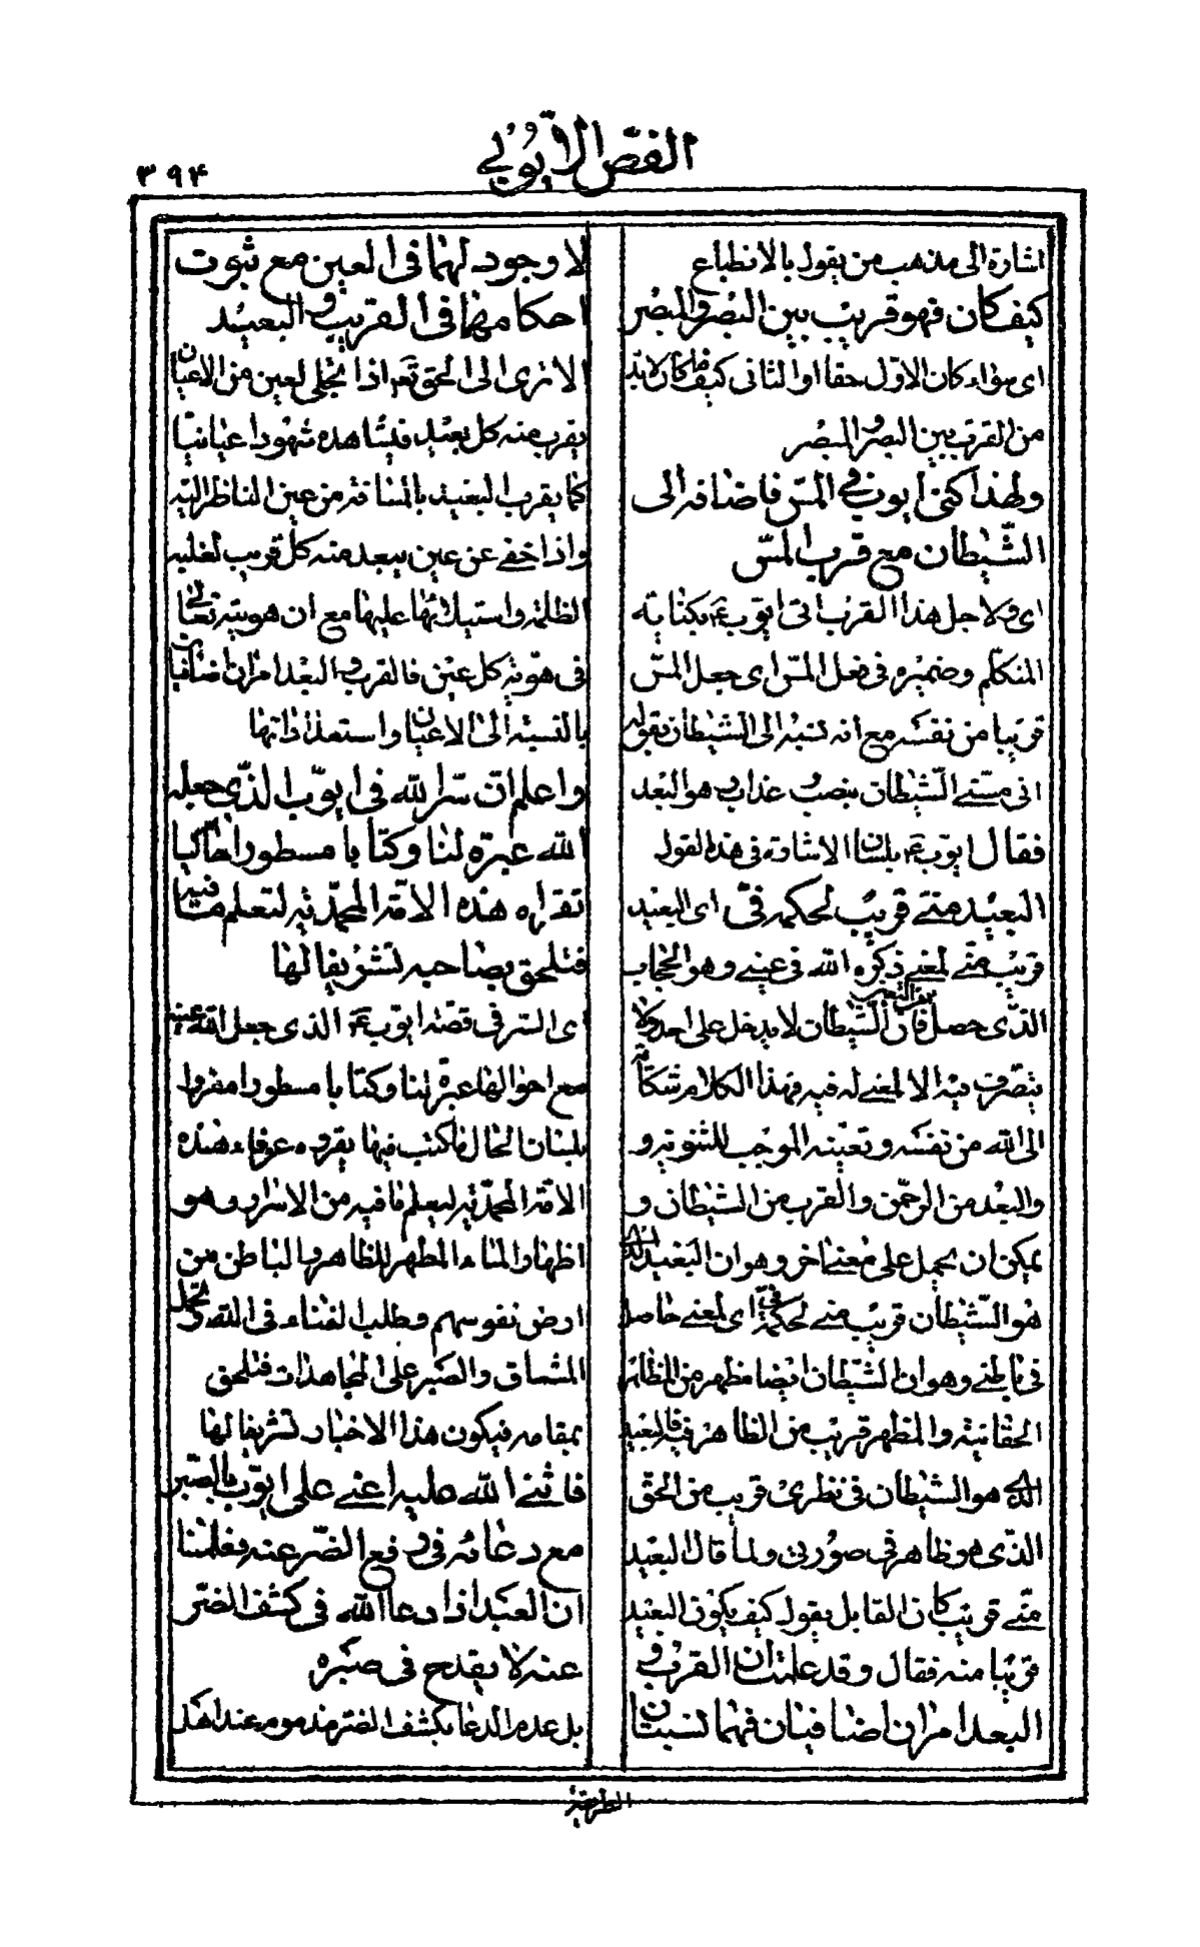 الفص الايوبي
٣٩۴
اشارة الى مذهب من يقول بالانطباع
كيف كان فهو قريب بين البصر والمبصر
اى سواء كان الاول حقا او الثانى كيف ما كان لابد
من القرب بين البصر والمبصر
ولهذا كنى ايوب فى المس فاضافه الى
الشيطان مع قرب المس
اى ولاجل هذا القرب اتى ايوب ع بكناية
المتكلم وضميره فى فعل المس اى جعل المس
قريبا من نفسه مع انه نسبه الى الشيطان بقوله
انى مسنى الشيطان بنصب وعذاب وهو البعد
فقال ايوب ع بلسان الاشارة فى هذه القول
البعيد منى قريب لحكمه فى اى البعيد
قريب منى لمعنى ذكره الله فى عينى وهو الحجاب
الذى حصل فان الشيطان لا يدخل على احد ولا
يتصرف فيه الا لمعنى له فيه فهذا الكلام شكاية
الى الله من نفسه وتعينه الموجب للثنوية و
والبعد من الرحمن والقرب من الشيطان و
يمكن ان يحمل على معنى اخر وهو ان البعيد الذى
هو الشيطان قريب منى لحكمه فى اى لمعنى حاصل
فى باطنى وهو ان الشيطان ايضا مظهر من المظاهر
الحقانية والمظهر قريب من الظاهر فيه فالبعيد
الذى هو الشيطان فى نظرى قريب من الحق
الذى هو ظاهر فى صورتى ولما قال البعيد
منى قريب كان القايل يقول كيف يكون البعيد
قريبا منه فقال وقد علمت ان القرب و
البعد امران اضافيان فهما نسبتان
لا وجود لهما فى العين مع ثبوت
احكامهما فى القريب والبعيد
الا ترى الى الحق تعه اذا تجلى لعين من الاعيان
يقرب منه كل بعيد فيشاهده شهودا عيانيا
كما يقرب البعيد بالمسافة من عين الناظر اليه
واذا خفى عن عين يبعد منه كل قريب لغلبه
الظلمة واستيلائها عليها مع ان هويته تعالى
فى هوية كل عين فالقرب والبعد امران اضافيان
بالنسبة الى الاعيان واستعداداتها
واعلم ان سر الله فى ايوب الذى جعله
الله عبرة لنا وكتابا مسطورا حاليا
تقراه هذه الامة المحمدية لتعلم ما فيه
فتلحق بصاحبه تشريفا لها
اى السر فى قصة ايوب ع الذى جعل الله عينه
مع احوالها عبرة لنا وكتابا مسطورا مقروا
بلسان الحال ما كتب فيها يقروه عرفاء هذه
الامة المحمدية ليعلم ما فيه من الاسرار وهو
اظهار الماء المطهر للظاهر والباطن من
ارض نفوسهم وطلب الفناء فى الله وتحمل
المشاق والصبر على المجاهدات فتلحق
بمقامه فيكون هذا الاخبار تشريفا لها
فاثنى الله عليه اعنى على ايوب بالصبر
مع دعائه فى رفع الضر عنه فعلمنا
ان العبد اذا دعا الله فى كشف الضر
عنه لا يقدح فى صبره
بل عدم الدعا بكشف الضر مذموم عند اهل
الطريقة